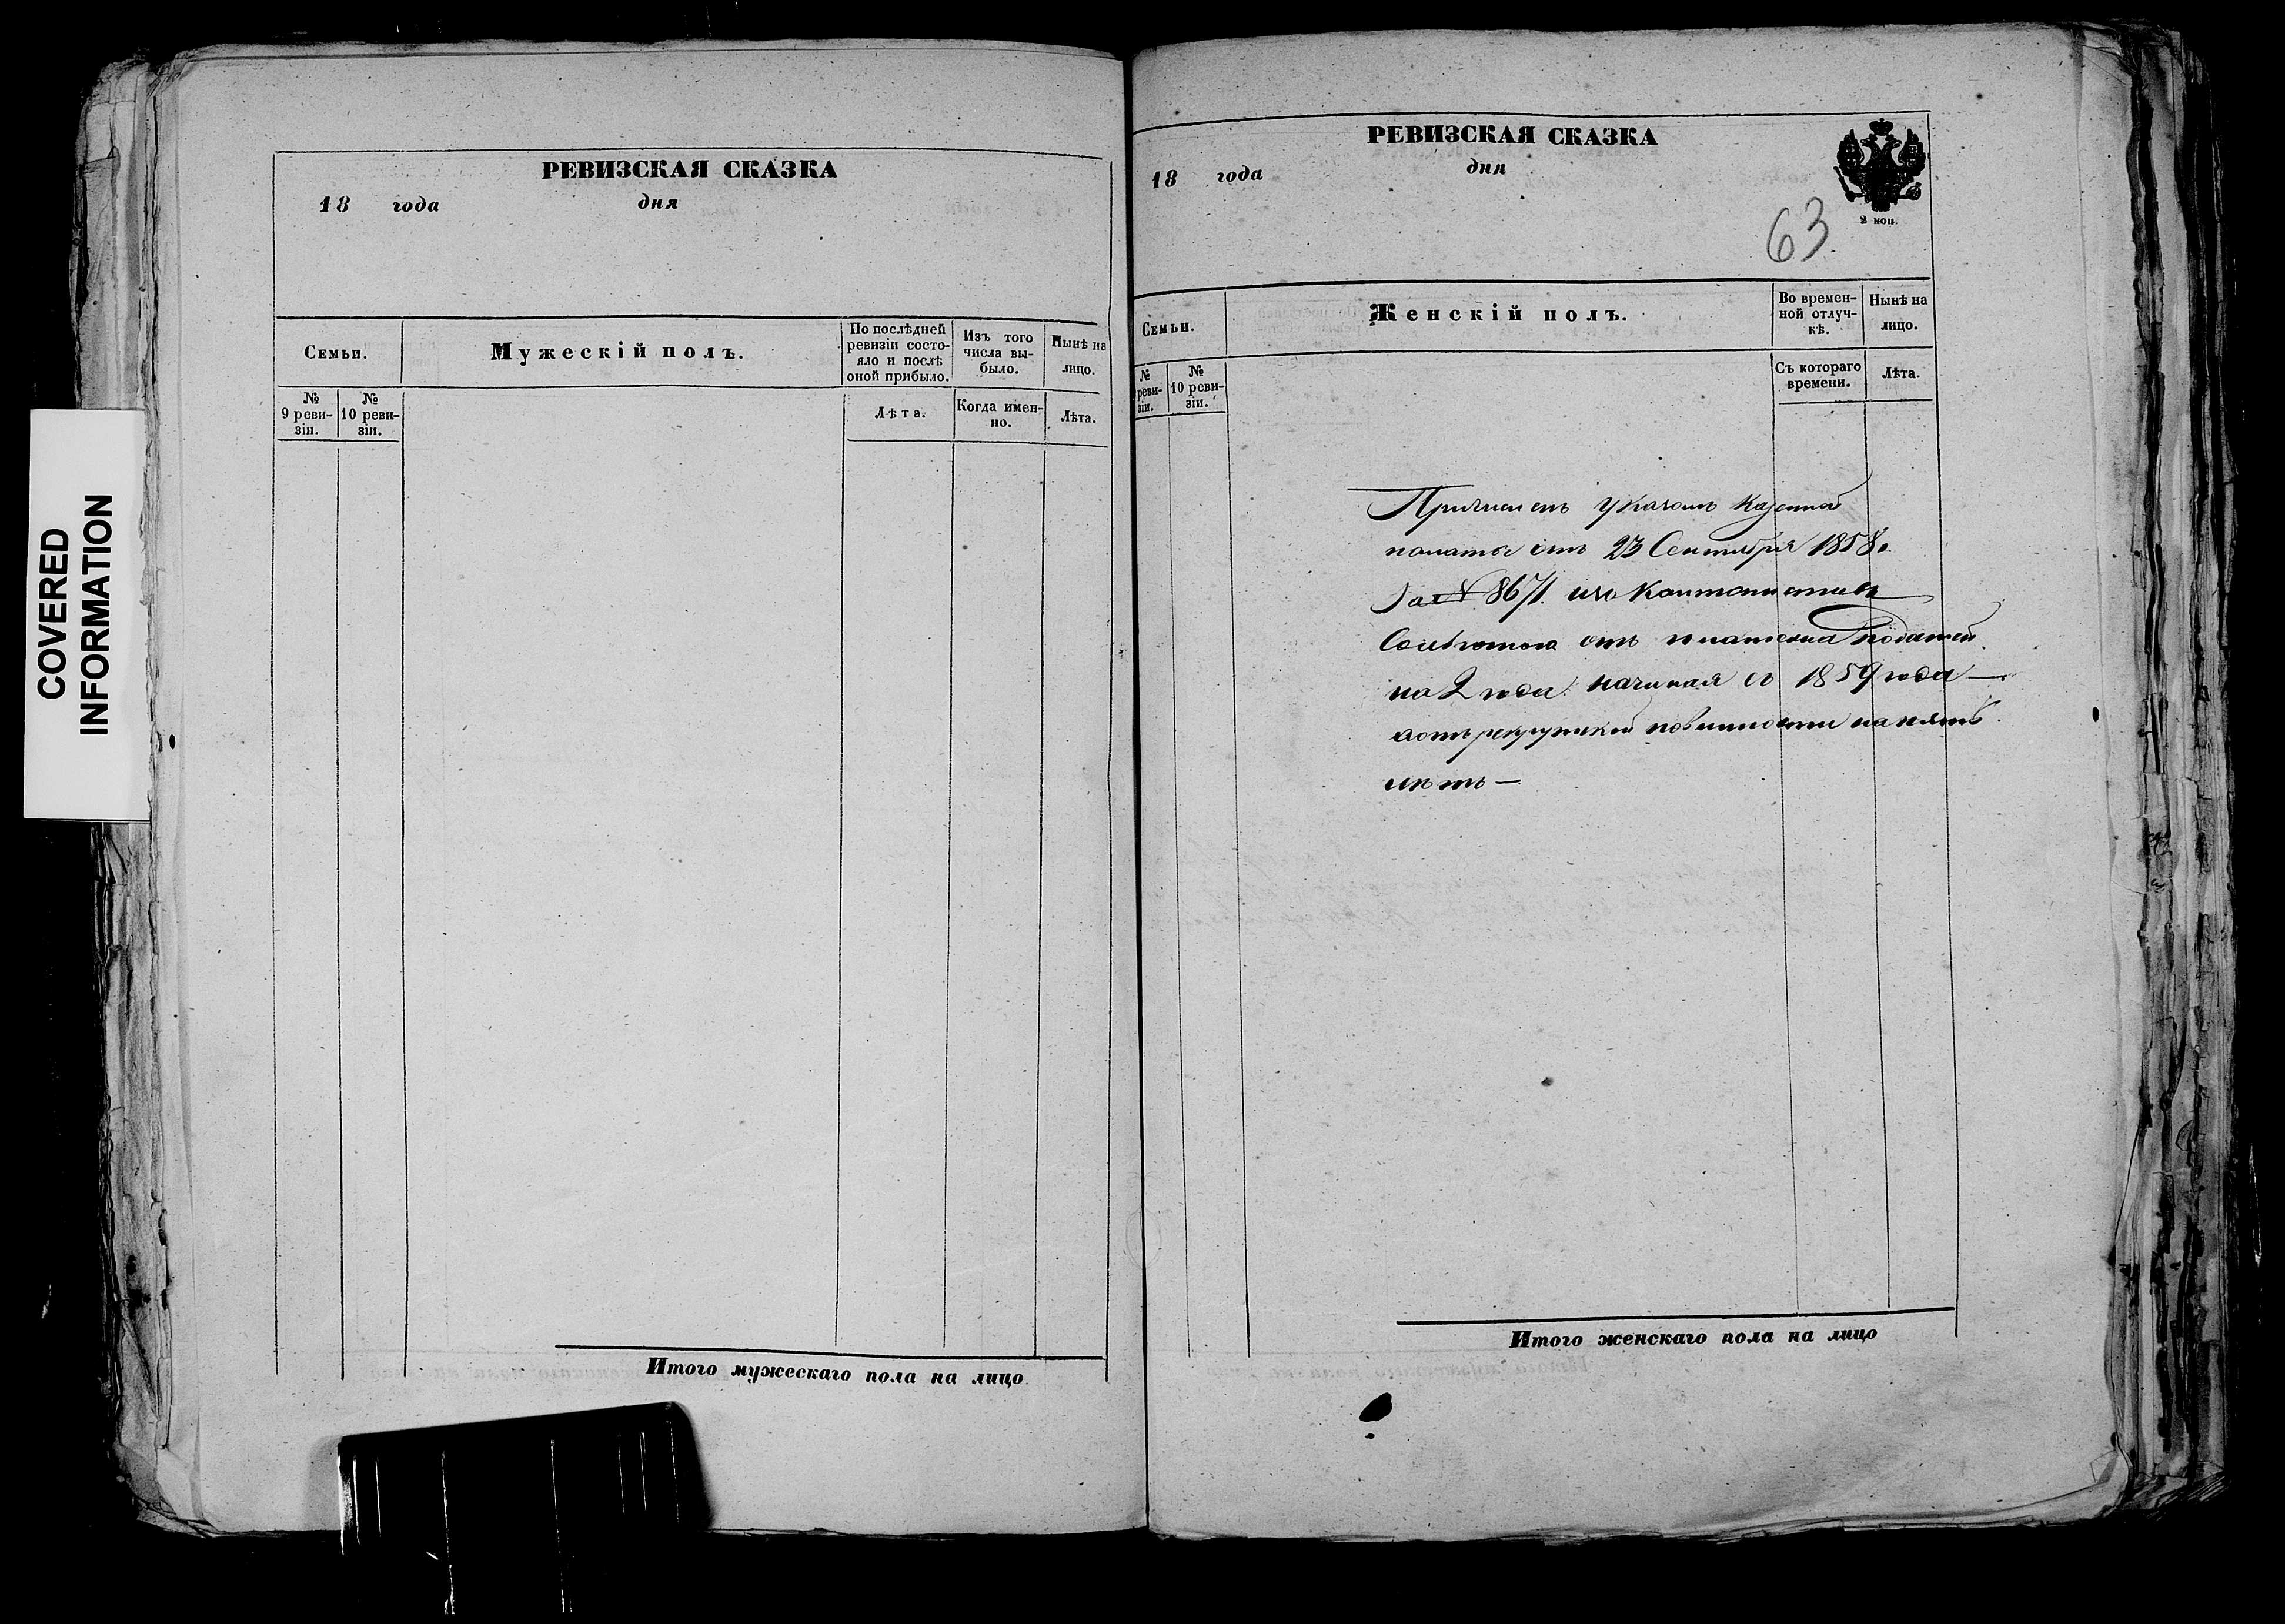 COVERED
INFORMATION
РЕВИЗСКАЯ СКАЗКА
18 года дня
Семьи.
Мужескій полъ.
По послѣдней
ревизіи состо-
яло и послѣ
оной прибыло.
Изъ того
числа вы-
было.
Нынѣ на
лицо.
№
9 реви-
зіи.
№
10 реви-
зіи.
Лѣта.
Когда имен-
но.
Лѣта.
Итого мужескаго пола на лицо
РЕВИЗСКАЯ СКАЗКА
18 года дня
2 коп.
63.
Семьи.
Женскій полъ.
Во времен-
ной отлуч-
кѣ.
Нынѣ на
лицо.
№
реви-
зіи.
№
10 реви-
зіи.
Съ котораго
времени.
Лѣта.
Причисленъ указомъ Казенной
палаты отъ 23 Сентября 1858г.
За № 8671. изъ Кантонистовъ
отъ платежа податей
на 2 года начиная съ 1859 года —
а отъ рекрутской повинности на пять
лѣтъ —
Итого женскаго пола на лицо